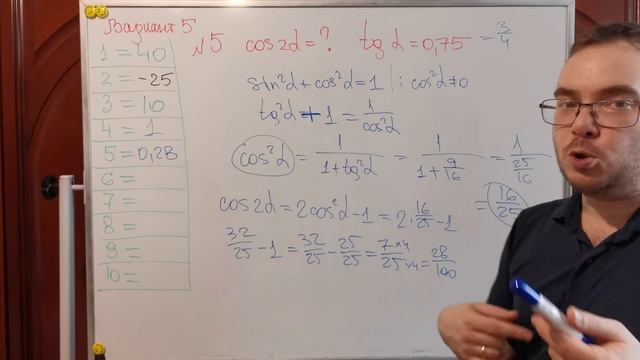 Вариант 5
1 = 40
2 = -25
3 = 10
4 = 1
5 = 0,28
6 =
7 =
8 =
9 =
10 =
№5 cos2α = ? tgα = 0,75 = 3/4
sin²α + cos²α = 1 | : cos²α ≠ 0
tg²α + 1 = 1/cos²α
cos²α = 1/(1+tg²α) = 1/(1+9/16) = 1/(25/16)
= 16/25
cos2α = 2cos²α - 1 = 2·16/25 - 1
32/25 - 1 = 32/25 - 25/25 = 7×4/25×4 = 28/100